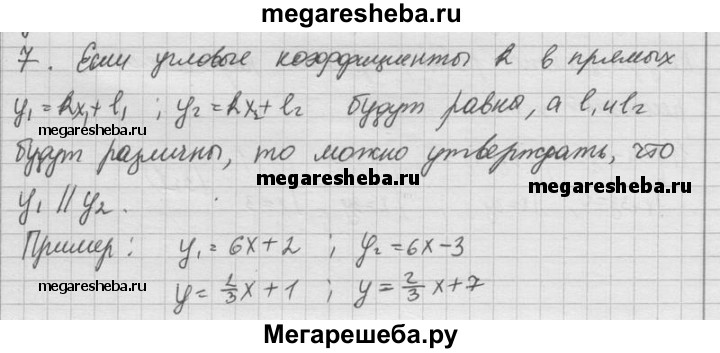 megaresheba.ru
7. Если угловые коэффициенты k в прямых
y₁ = kx₁ + l₁ ; y₂ = kx₂ + l₂ будут равны, а l₁ и l₂
megaresheba.ru
будут различны, то можно утверждать, что
megaresheba.ru megaresheba.ru
y₁ || y₂.
Пример: y₁ = 6x + 2 ; y₂ = 6x - 3
megaresheba.ru
y = 2/3 x + 1 ; y = 2/3 x + 7
Мегарешеба.ру